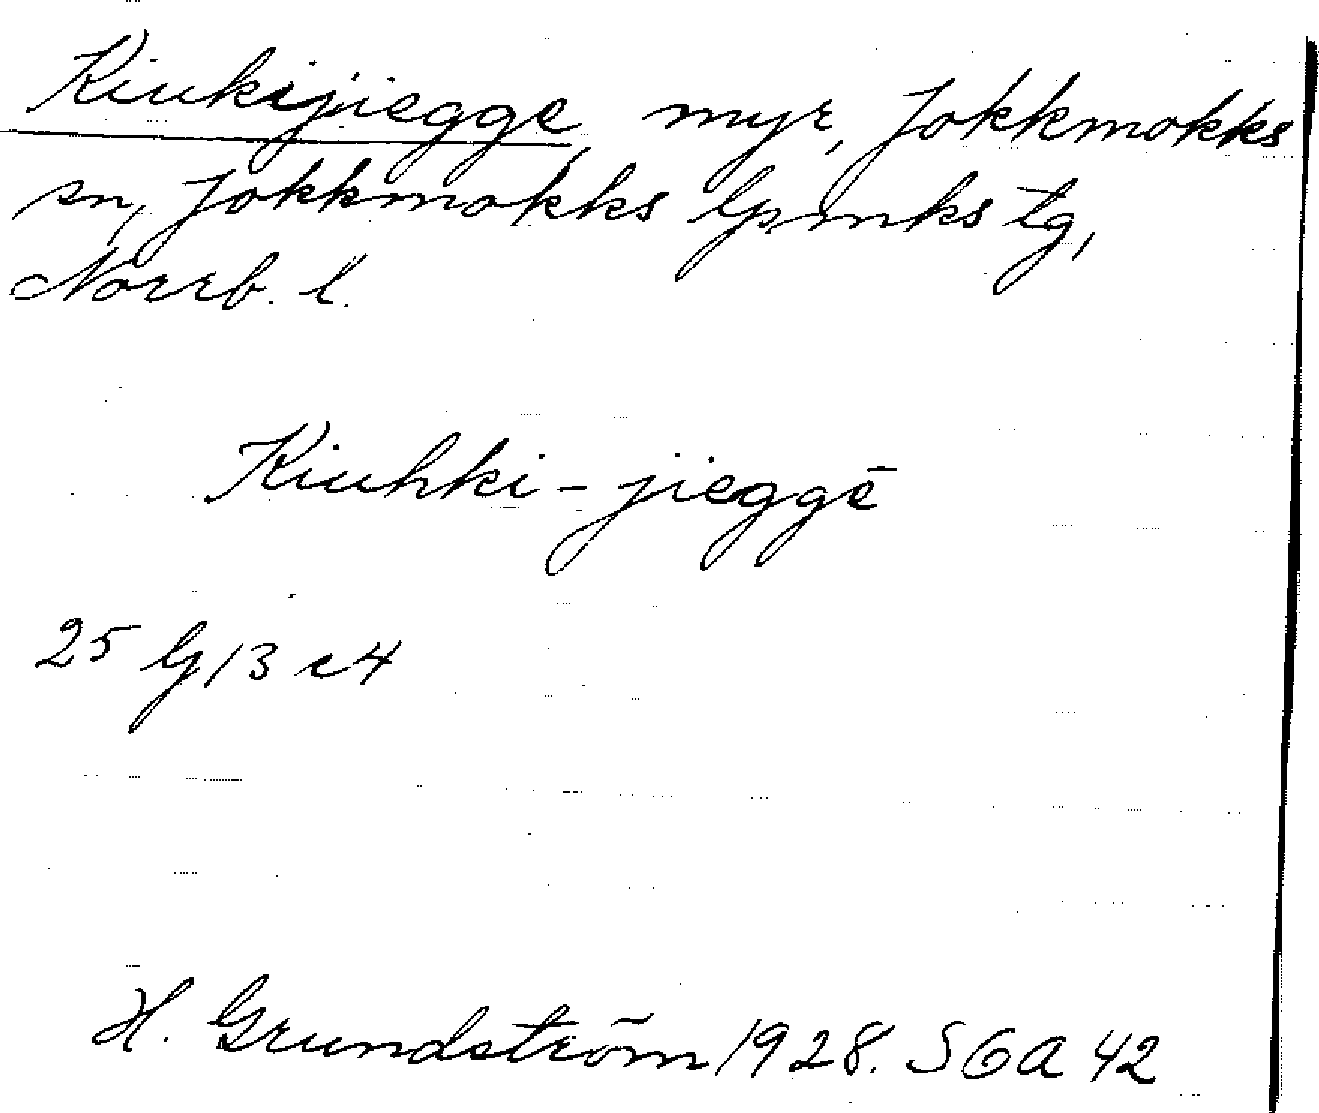 Kiukijiegge, myr, Jokkmokks
sn, Jokkmokks lpmks tg,
Norrb. l.
Kiuhki-jieggē
25 G/3 c4
H. Grundström 1928. SGA 42